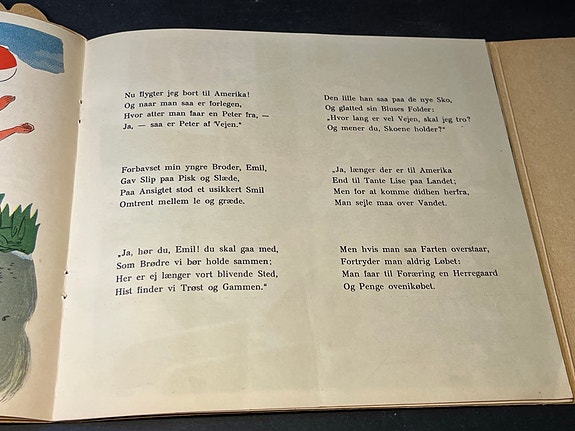 Nu flygter jeg bort til Amerika!
Og naar man saa er forlegen,
Hvor atter man faar en Peter fra, —
Ja, — saa er Peter af Vejen.“
Forbavset min yngre Broder, Emil,
Gav Slip paa Pisk og Slæde,
Paa Ansigtet stod et usikkert Smil
Omtrent mellem le og græde.
„Ja, hør du, Emil! du skal gaa med,
Som Brødre vi bør holde sammen;
Her er ej længer vort blivende Sted,
Hist finder vi Trøst og Gammen.“
Den lille han saa paa de nye Sko,
Og glatted sin Bluses Folder:
„Hvor lang er vel Vejen, skal jeg tro?
Og mener du, Skoene holder?“
„Ja, længer der er til Amerika
End til Tante Lise paa Landet;
Men for at komme didhen herfra,
Man sejle maa over Vandet.
Men hvis man saa Farten overstaar,
Fortryder man aldrig Løbet:
Man faar til Foræring en Herregaard
Og Penge ovenikøbet.